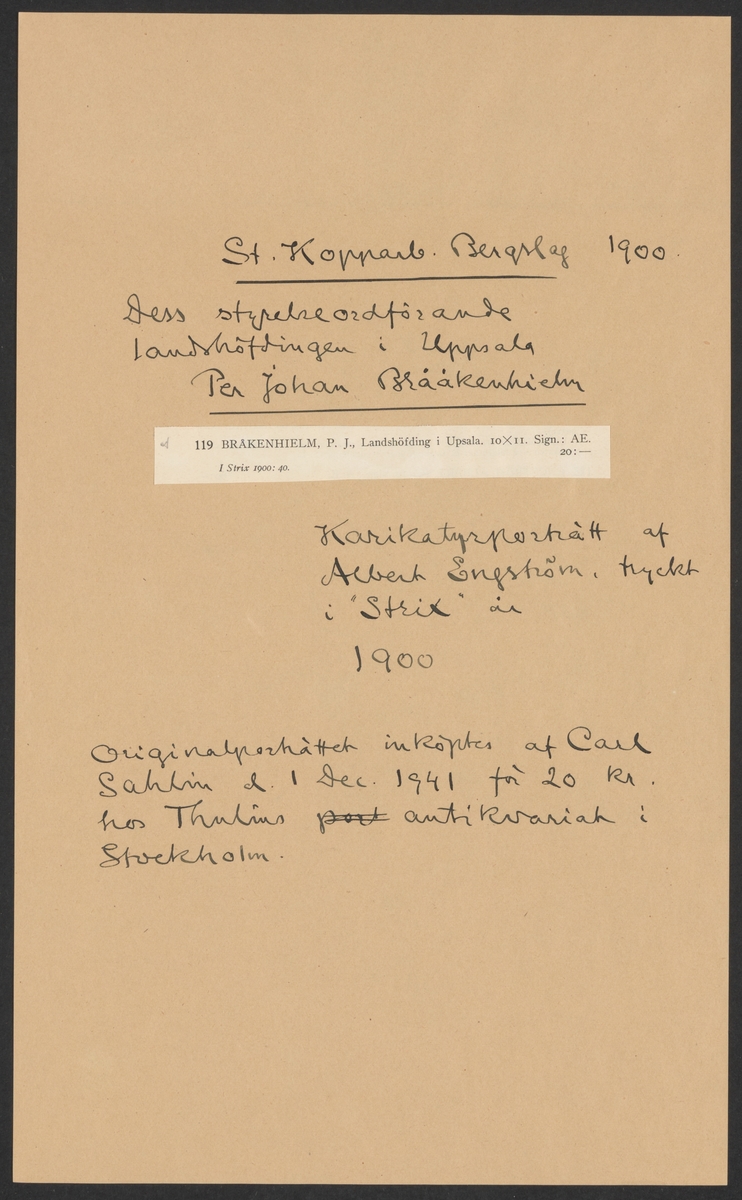 St. Kopparb. Bergslag 1900.
Dess styrelseordförande
landshöfdingen i Uppsala
Per Johan Bråkenhielm
119 BRÅKENHIELM, P. J., Landshöfding i Upsala. 10×11. Sign.: AE.
20:—
I Strix 1900: 40.
Karikatyrporträtt af
Albert Engström, tryckt
i "Strix" år
1900
Originalporträttet inköptes af Carl
Sahlin d. 1 Dec. 1941 för 20 kr.
hos Thulins port antikvariat i
Stockholm.